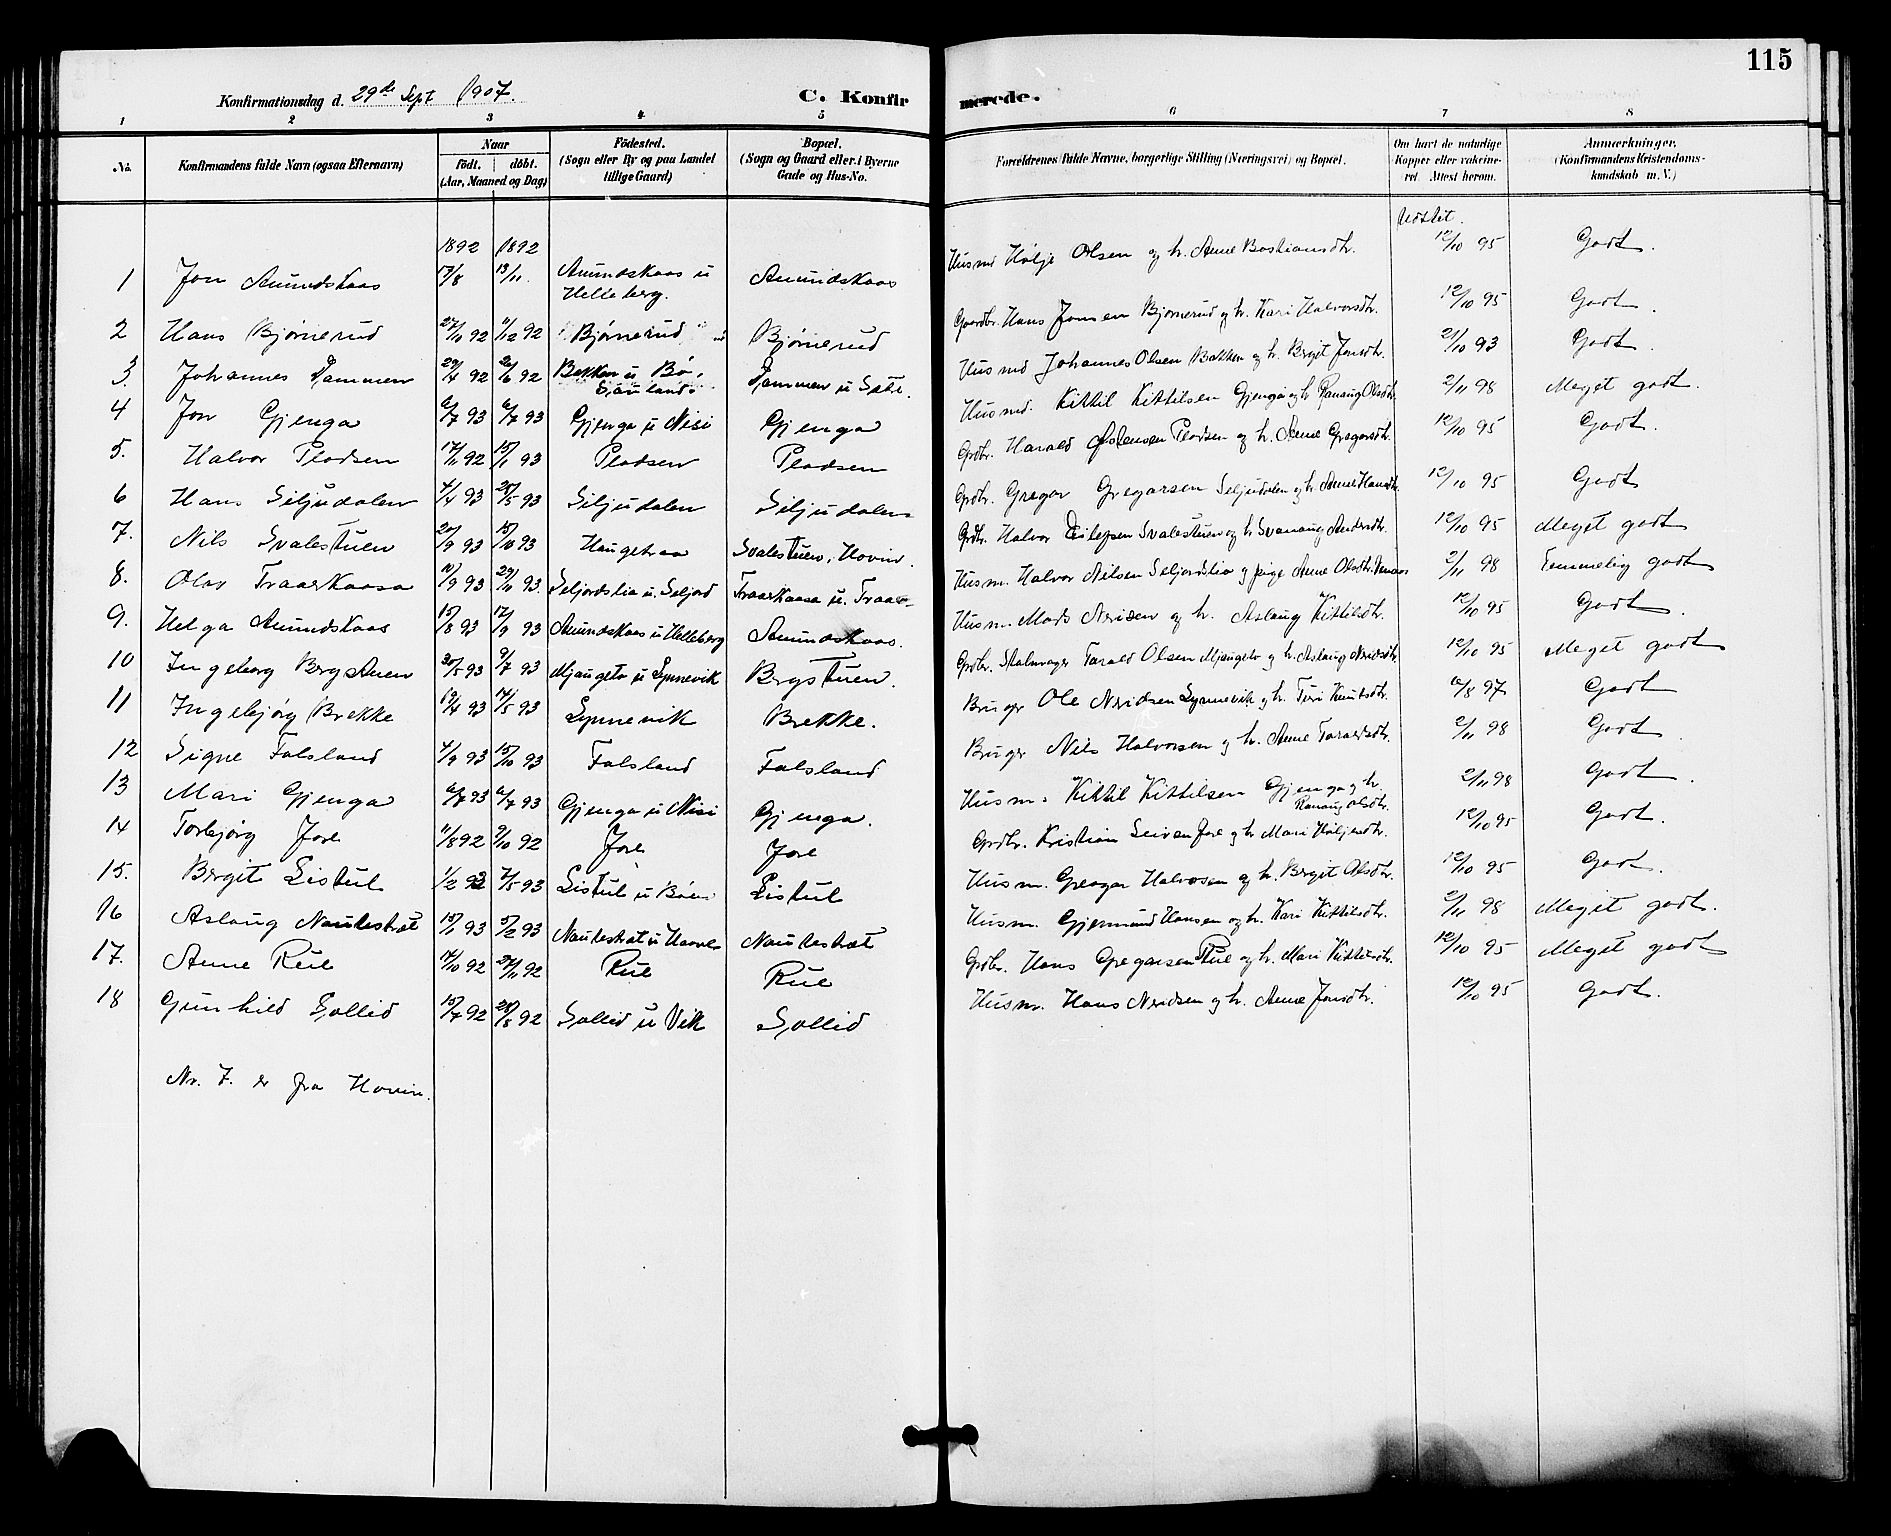 115
Konfirmationsdag d. 29de Sept 1907. C. Konfirmerede.
1 2 3 4 5 6 7 8
No. Konfirmandens fulde Navn (ogsaa Efternavn) Naar födt. döbt. (Aar, Maaned og Dag) Födested. (Sogn eller By og paa Landet tillige Gaard) Bopæl. (Sogn og Gaard eller i Byerne Gade og Hus-No. Forældrenes fulde Navne, borgerlige Stilling (Næringsvei) og Bopæl. Om havt de naturlige Kopper eller vakcineret Attest herom. Anmærkninger. (Konfirmandens Kristendomskundskab m. V.)
1892 1892
1 Jon Amundskaas 17/8 13/11. Amundskaas u Helleberg. Amundskaas Husmd Hölje Olsen og h. Anne Bastiansdtr. 12/10 95 Godt.
2 Hans Bjørnerud 27/10 92 11/12 92 Bjørnerud Bjørnerud Gaardbr. Hans Jonsen Bjørnerud og h. Kari Halvorsdtr. 12/10 95 Godt.
3. Johannes Dammen 29/4 92 26/6 92 Bakken u Bø, Sauland. Dammen u Husmd Johannes Olsen Bakken og h. Bergit Jonsdtr. 21/10 93 Godt.
4 Jon Gjenga 6/7 93 6/7 93 Gjenga u Nisi Gjenga Husmd. Kittil Kittilsen Gjenga og h Ranaug Olsdtr. 2/11 98 Meget godt.
5. Halvor Pladsen 17/11 92 15/1 93 Pladsen Pladsen Grdbr. Harald Østensen Pladsen og h. Anne Gregarsdtr. 12/10 95 Godt.
6 Hans Siljudalen 4/4 93 28/5 93 Siljudalen Siljudalen Grdbr. Gregar Gregarsen Seljudalen og h Anne Hansdtr. 12/10 95 Godt
7. Nils Svalestuen 20/9 93 15/10 93 Haugetraa Svalestuen, Hovin. Grdbr. Halvor Svalestuen og h Svanaug Andersdtr. 12/10 95 Meget godt
8. Olav Traarkaasa 10/9 93 29/11 93. Seljordslia u. Seljord Traarkaasa u. Traar Husm. Halvor Nilsen Seljordslia g pige Anne Olsdtr. 2/11 98 Temmelig godt
9. Helga Amundskaas 15/8 93 17/9 93 Amundskaas u Helleberg Amundskaas. Husm. Mads Neridsen og h. Aslaug Kittilsdtr. 12/10 95 Godt.
10 Ingeborg Bergstuen 20/5 93 9/7 93 Mjaugetv u Synnevik Bergstuen. Grdbr. Tarald Olsen Mjaugetv g h. Aslaug Neridsdtr. 12/10 95 Meget godt
11 Ingebjørg Brekke 19/4 93 14/5 93 Synnevik Brekke. Bruger Ole Neridsen Synnevik g h. Turi Knutsdtr. 10/8 97 Godt
12 Signe Falsland 4/9 93 15/10 93 Falsland Falsland Bruger Nils Halvorsen g h. Anne Taraldsdtr. 2/11 98 Godt.
13 Mari Gjenga 6/7 93 6/7 93 Gjenga u Nisi Gjenga. Husm. Kittil Kittilsen Gjenga g h Ranaug Olsdtr. 2/11 98 Godt.
14 Torbjørg Jore 11/8 92 9/10 92 Jore Jore Grdbr. Kristian Jore g h Mari Höljesdtr. 12/10 95 Godt.
15. Bergit Listul 1/2 93 7/5 93 Listul u Bøen Listul Husm. Gregar Halvorsen g h. Bergit Olsdtr. 12/10 95 Godt.
16 Aslaug Nautestræt 15/1 93 5/2 93 Nautestræt u Nautestræt Husm. Gjermund Hansen og h. Kari Kittilsdtr. 2/11 98 Meget godt.
17. Anne Rue 14/10 92 27/11 92 Rue Rue Grdbr. Hans Gregarsen Rue og h. Mari Kittilsdtr. 12/10 95 Meget godt
18 Gunhild Sollid 15/7 92 28/8 92 Sollid u Vik Sollid Husm. Hans Neridsen g h. Anne Jonsdtr. 12/10 95 Godt.
Nr. 7. er fra Hovin.